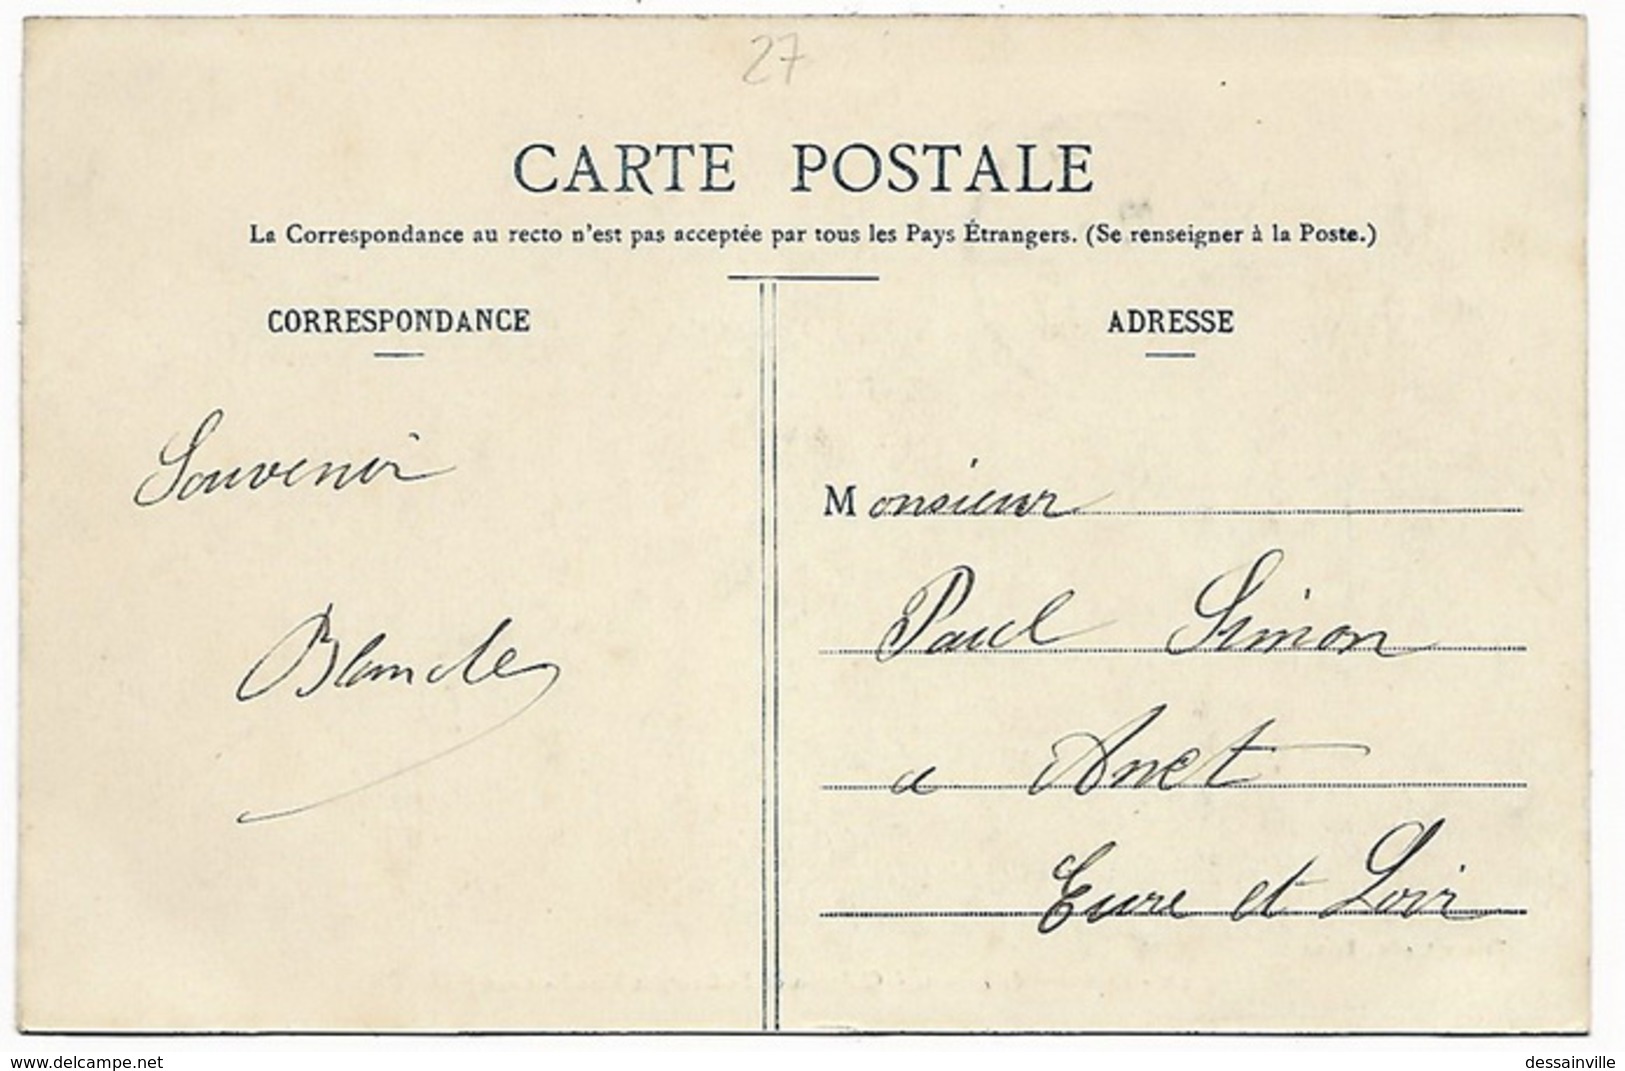 27
CARTE POSTALE
La Correspondance au recto n'est pas acceptée par tous les Pays Étrangers. (Se renseigner à la Poste.)
CORRESPONDANCE
Souvenir
Blanche
ADRESSE
Monsieur
Paul Simon
a Anet
Eure et Loir
www.delcampe.net
dessainville